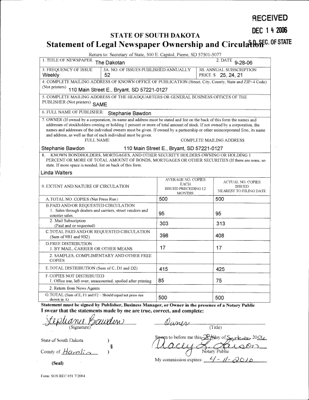 RECEIVED
DEC 14 2006
S.D. SEC. OF STATE
STATE OF SOUTH DAKOTA
Statement of Legal Newspaper Ownership and Circulation
Return to: Secretary of State, 500 E. Capitol, Pierre, SD 57501-5077
1. TITLE OF NEWSPAPER The Dakotan
2. DATE 9-28-06
3. FREQUENCY OF ISSUE Weekly
3A. NO. OF ISSUES PUBLISHED ANNUALLY 52
3B. ANNUAL SUBSCRIPTION PRICE $ 25, 24, 21
4. COMPLETE MAILING ADDRESS OF KNOWN OFFICE OF PUBLICATION (Street, City, County, State and ZIP+4 Code)
(Not printers) 110 Main Street E., Bryant, SD 57221-0127
5. COMPLETE MAILING ADDRESS OF THE HEADQUARTERS OR GENERAL BUSINESS OFFICES OF THE
PUBLISHER (Not printers) SAME
6. FULL NAME OF PUBLISHER: Stephanie Bawdon
7. OWNER (If owned by a corporation, its name and address must be stated and list on the back of this form the names and
addresses of stockholders owning or holding 1 percent or more of total amount of stock. If not owned by a corporation, the
names and addresses of the individual owners must be given. If owned by a partnership or other unincorporated firm, its name
and address, as well as that of each individual must be given.
FULL NAME COMPLETE MAILING ADDRESS
Stephanie Bawdon 110 Main Street E., Bryant, SD 57221-0127
8. KNOWN BONDHOLDERS, MORTGAGES, AND OTHER SECURITY HOLDERS OWNING OR HOLDING 1
PERCENT OR MORE OF TOTAL AMOUNT OF BONDS, MORTGAGES OR OTHER SECURITIES (If there are none, so
state. If more space is needed, list on back of this form.
Linda Walters
9. EXTENT AND NATURE OF CIRCULATION
AVERAGE NO. COPIES EACH ISSUED PRECEDING 12 MONTHS
ACTUAL NO. COPIES ISSUED NEAREST TO FILING DATE
A. TOTAL NO. COPIES (Net Press Run) 500 500
B. PAID AND/OR REQUESTED CIRCULATION
1. Sales through dealers and carriers, street vendors and
counter sales. 95 95
2. Mail Subscription
(Paid and/or requested) 303 313
C. TOTAL PAID AND/OR REQUESTED CIRCULATION
(Sum of 9B1 and 9B2) 398 408
D. FREE DISTRIBUTION
1. BY MAIL, CARRIER OR OTHER MEANS 17 17
2. SAMPLES, COMPLIMENTARY AND OTHER FREE
COPIES
E. TOTAL DISTRIBUTION (Sum of C, D1 and D2) 415 425
F. COPIES NOT DISTRIBUTED
1. Office use, left over, unaccounted, spoiled after printing 85 75
2. Return from News Agents
G. TOTAL (Sum of E, F1 and F2 - Should equal net press run
shown in A) 500 500
Statement must be signed by Publisher, Business Manager, or Owner in the presence of a Notary Public
I swear that the statements made by me are true, correct, and complete:
Stephanie Bawdon Owner
(Signature) (Title)
State of South Dakota )
) §
County of Hamlin )
Sworn to before me this 28 day of September 2006
Tracey L. Larson
Notary Public
(Seal)
My commission expires: 4-11-2010